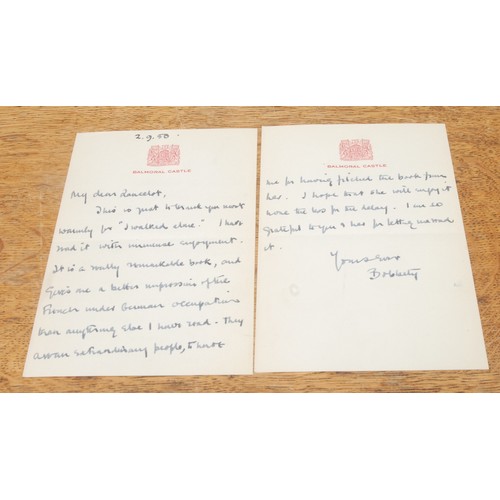 2.9.50.
BALMORAL CASTLE
My dear Lancelot,
This is just to thank you most
warmly for "I walked alone." I have
read it with immense enjoyment.
It is a really remarkable book, and
gives me a better impression of the
French under German occupation
than anything else I have read. They
are an extraordinary people,
BALMORAL CASTLE
me for having pinched the book from
her. I hope that she will enjoy it
more the for the delay. I am so
grateful to you & her for letting me read
it.
Yours ever
Bobbety